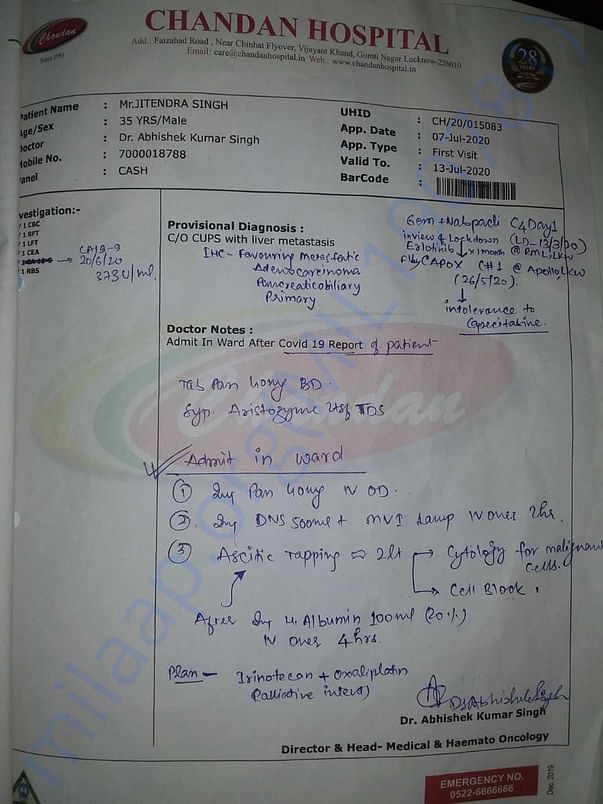 Chandan
Since 1991
CHANDAN HOSPITAL
Add.: Faizabad Road, Near Chinhat Flyover, Vijayant Khand, Gomti Nagar Lucknow-226010
Email: care@chandanhospital.in Web.: www.chandanhospital.in
28 YEARS
Patient Name : Mr.JITENDRA SINGH
Age/Sex : 35 YRS/Male
Doctor : Dr. Abhishek Kumar Singh
Mobile No. : 7000018788
Panel : CASH
UHID : CH/20/015083
App. Date : 07-Jul-2020
App. Type : First Visit
Valid To. : 13-Jul-2020
BarCode :
nvestigation:-
/ 1 CBC
/ 1 RFT
/ 1 LFT
/ 1 CEA
/ 1 RBS
CA19-9
20/6/20
373 U/ml.
Provisional Diagnosis :
C/O CUPS with liver metastasis
IHC - Favouring metastatic
Adenocarcinoma
Pancreaticobiliary
Primary
Gem + Nabpacli C4Day1
inview of Lockdown (LD_12/3/20)
Erlotinib x 1month @ RMLI, LKW
CAPOX C#1 @ Apollo LKW
(26/5/20).
intolerance to
Capecitabine.
Doctor Notes :
Admit In Ward After Covid 19 Report of patient
Tab Pan 40mg BD.
Syp. Aristozyme 2tsf TDS
Admit in ward
① Inj Pan 40mg IV OD.
② Inj DNS 500ml + MVI 1amp IV over 2hr.
③ Ascitic Tapping 2lt → Cytology for malignant cells.
→ Cell Block.
After Inj H. Albumin 100ml (20%)
IV over 4hrs.
Plan - Irinotecan + Oxaliplatin
(Palliative intent)
Dr Abhishek Singh
Dr. Abhishek Kumar Singh
Director & Head- Medical & Haemato Oncology
EMERGENCY NO.
0522-6666666
Dec. 2019
Chandan
milaap.org